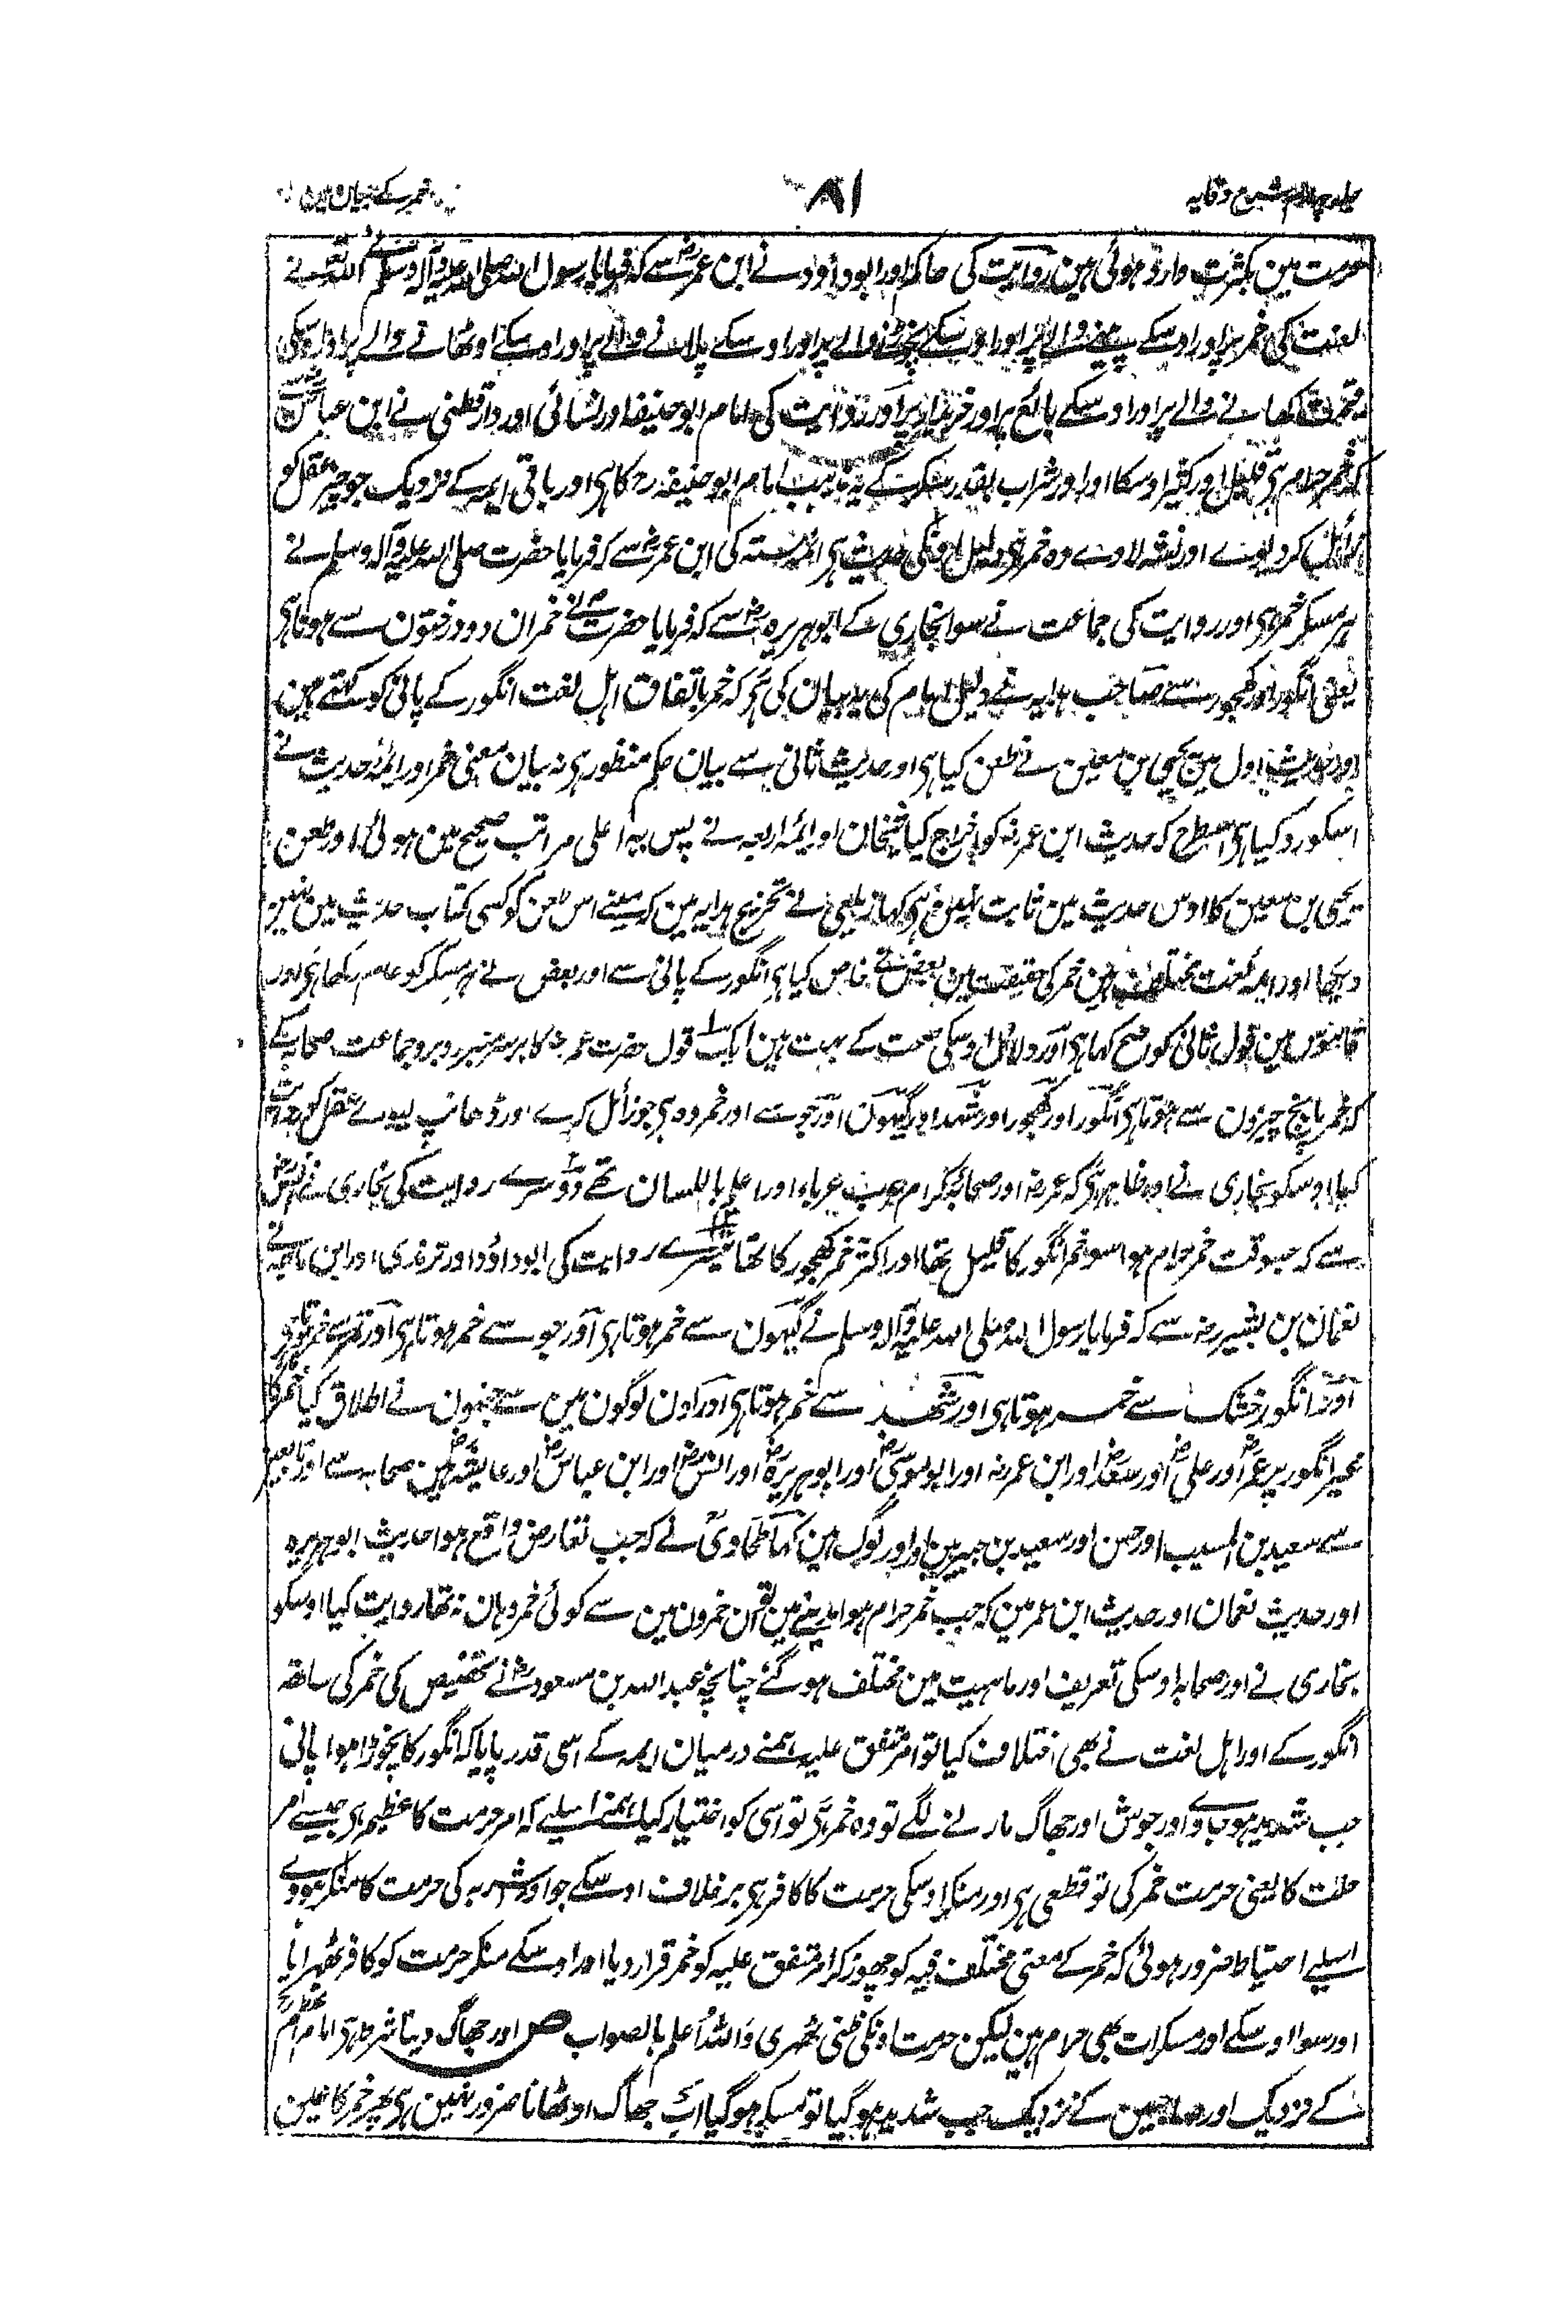 جلد چہارم شرح وقایہ
۸۱
خمر کے بیان مین
حرمت مین بکثرت وارد ہوئی ہین روایت کی حاکم اور ابو داؤد نے ابن عمرؓ سے کہ فرمایا رسول اللہ صلی اللہ علیہ وآلہ وسلم نے اللہ نے
لعنت کی خمر پر اور اوسکے پینے والے پر اور اوسکے نچوڑنے والے پر اور اوسکے پلانے والے پر اور اوسکے اوٹھانے والے پر اور اوسکی
قیمت کھانے والے پر اور اوسکے بائع پر اور خریدار پر اور روایت کی امام ابو حنیفہ اور نسائی اور دارقطنی نے ابن عباسؓ سے
کہ خمر حرام ہی قلیل اور کثیر اوسکا اور اور شراب بقدر سکر کے یہ مذہب امام ابو حنیفہ رح کا ہی اور باقی ایمہ کے نزدیک جو چیز عقل کو
زائل کر دیوے اور نشہ لاوے وہ خمر ہی دلیل اونکی حدیث ہی ائمہ ستہ کی ابن عمرؓ سے کہ فرمایا حضرت صلی اللہ علیہ وآلہ وسلم نے
ہر مسکر خمر ہی اور روایت کی جماعت نے سوا بخاری کے ابو ہریرہؓ سے کہ فرمایا حضرتؐ نے خمر ان دو درختون سے ہوتا ہی
یعنی انگور اور کھجور سے صاحب ہدایہ نے دلیل امام کی یہ بیان کی ہی کہ خمر باتفاق اہل لغت انگور کے پانی کو کہتے ہین
اور حدیث اول مین یحیی بن معین نے طعن کیا ہی اور حدیث ثانی سے بیان حکم منظور ہی نہ بیان معنی خمر اور ایمۂ حدیث نے
اسکو رد کیا ہی اسطرح کہ حدیث ابن عمرؓ کو اخراج کیا شیخان اور ایمہ اربعہ نے پس یہ اعلی مراتب صحیح مین ہوئی اور طعن
یحیی بن معین کا اوس حدیث مین ثابت نہین ہی کہا زیلعی نے تخریج ہدایہ مین کہ مینے اس طعن کو کسی کتاب حدیث مین نہین
دیکھا اور ایمہ لغت مختلف ہین خمر کی حقیقت مین بعض نے خاص کیا ہی انگور کے پانی سے اور بعض نے ہر مسکر کو عام رکھا ہی اور
قاموس مین قول ثانی کو صح کہا ہی اور دلائل اوسکی صحت کے بہت ہین ایک قول حضرت عمرؓ کا برسر منبر روبرو جماعت صحابہ کے
کہ خمر پانچ چیزون سے ہوتا ہی انگور اور کھجور اور شہد اور گیہون اور جو سے اور خمر وہ ہی جو زائل کرے اور ڈھانپ لیوے عقل کو روایت
کیا اوسکو بخاری نے اور ظاہر ہی کہ عمرؓ اور صحابۂ کرام عرب عرباء اور اعلم باللسان تھے دوسرے روایت کی بخاری نے انسؓ
سے کہ جسوقت خمر حرام ہوا سو خمر انگور کا قلیل تھا اور اکثر خمر کھجور کا تھا تیسرے روایت کی ابو داؤد اور ترمذی اور ابن ماجہ نے
نعمان بن بشیرؓ سے کہ فرمایا رسول اللہ صلی اللہ علیہ وآلہ وسلم نے گیہون سے خمر ہوتا ہی اور جو سے خمر ہوتا ہی اور تمر سے خمر ہوتا ہی
اور انگور خشک سے خمر ہوتا ہی اور شہد سے خمر ہوتا ہی اور اون لوگون مین سے جنہون نے اطلاق کیا خمر کا
غیر انگور پر عمرؓ اور علیؓ اور سعدؓ اور ابن عمرؓ اور ابو موسیؓ اور ابو ہریرہؓ اور انسؓ اور ابن عباسؓ اور عایشہؓ ہین صحابہ سے اور تابعین
سے سعید بن المسیب اور حسن اور سعید بن جبیر ہین اور اور لوگ ہین کہا طحاویؒ نے کہ جب تعارض واقع ہوا حدیث ابو ہریرہ
اور حدیث نعمان اور حدیث ابن عمر مین کہ جب خمر حرام ہوا مدینے مین تو ان خمرون مین سے کوئی خمر وہان نہ تھا روایت کیا اوسکو
بخاری نے اور صحابہ اوسکی تعریف اور ماہیت مین مختلف ہو گئے چنانچہ عبد اللہ بن مسعودؓ نے تخصیص کی خمر کی ساتھ
انگور کے اور اہل لغت نے بھی اختلاف کیا تو امر متفق علیہ ہمنے درمیان ایمہ کے اسی قدر پایا کہ انگور کا نچوڑا ہوا پانی
جب شدید ہوجاوے اور جوش اور جھاگ مارنے لگے تو وہ خمر ہی تو اسی کو اختیار کیا ہمنے اسلیے کہ امر حرمت کا عظیم ہی جیسے امر
حلت کا یعنی حرمت خمر کی تو قطعی ہی اور منکر اوسکی حرمت کا کافر ہی برخلاف اوسکے جو اور اشربہ کی حرمت کا منکر ہووے
اسلیے احتیاط ضرور ہوئی کہ خمر کے معنی مختلف فیہ کو چھوڑ کر امر متفق علیہ کو خمر قرار دیا اور اوسکے منکر حرمت کو کافر ٹھہرایا
اور سوا اوسکے اور مسکرات بھی حرام ہین لیکن حرمت اونکی ظنی ٹھہری واللہ اعلم بالصواب ص اور جھاگ دینا شرط ہی امام اعظمؒ
کے نزدیک اور صاحبین کے نزدیک جب شدید ہو گیا تو مسکر ہو گیا اب جھاگ اوٹھانا ضرور نہین ہی پھر خمر کا عین